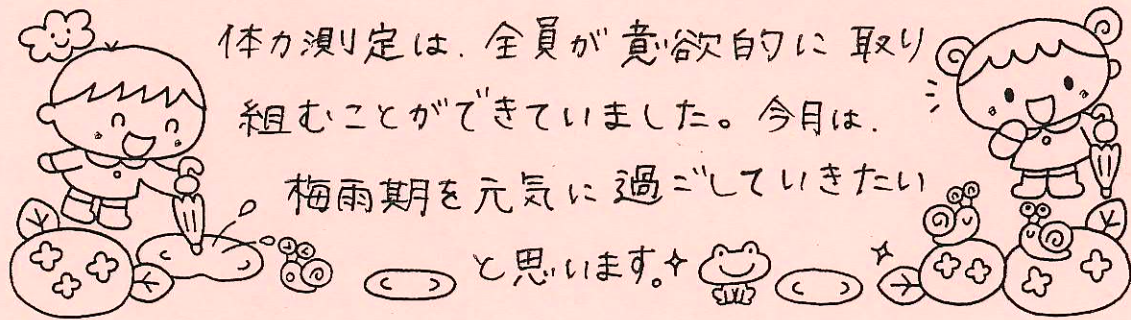 体力測定は、全員が意欲的に取り
組むことができていました。今月は、
梅雨期を元気に過ごしていきたい
と思います。